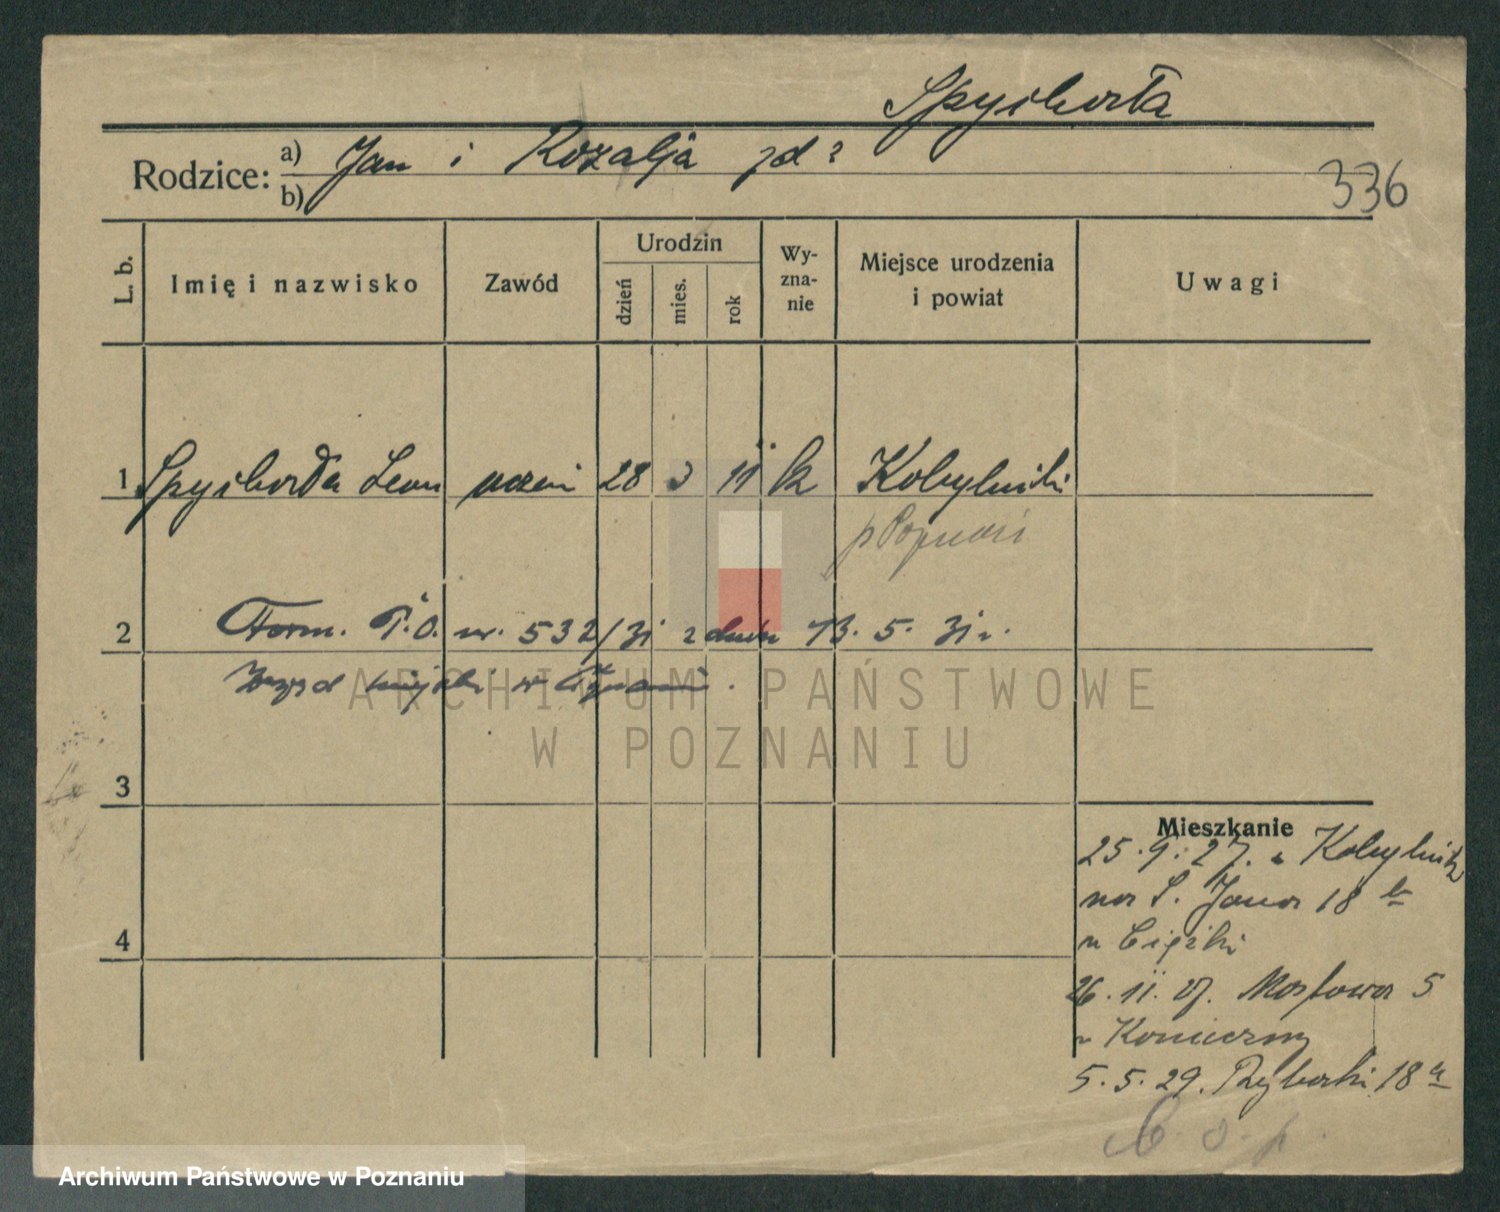 Spychała
Rodzice: a) Jan i Rozalja zd?
b)
336
L. b. Imię i nazwisko Zawód Urodzin dzień mies. rok Wy-zna-nie Miejsce urodzenia i powiat Uwagi
1 Spychała Leon uczeń 28 3 11 k Kobylniki
p Poznań
2 Form. P.O. nr. 532/31 z dnia 13. 5. 31 r.
w
3
Mieszkanie
25. 9. 27. z Kobylnik
na S. Jana 18
u
4
26. 11. 27. Mostowa 5
u
5. 5. 29. Rybaki 18
ARCHIWUM PAŃSTWOWE
W POZNANIU
Archiwum Państwowe w Poznaniu